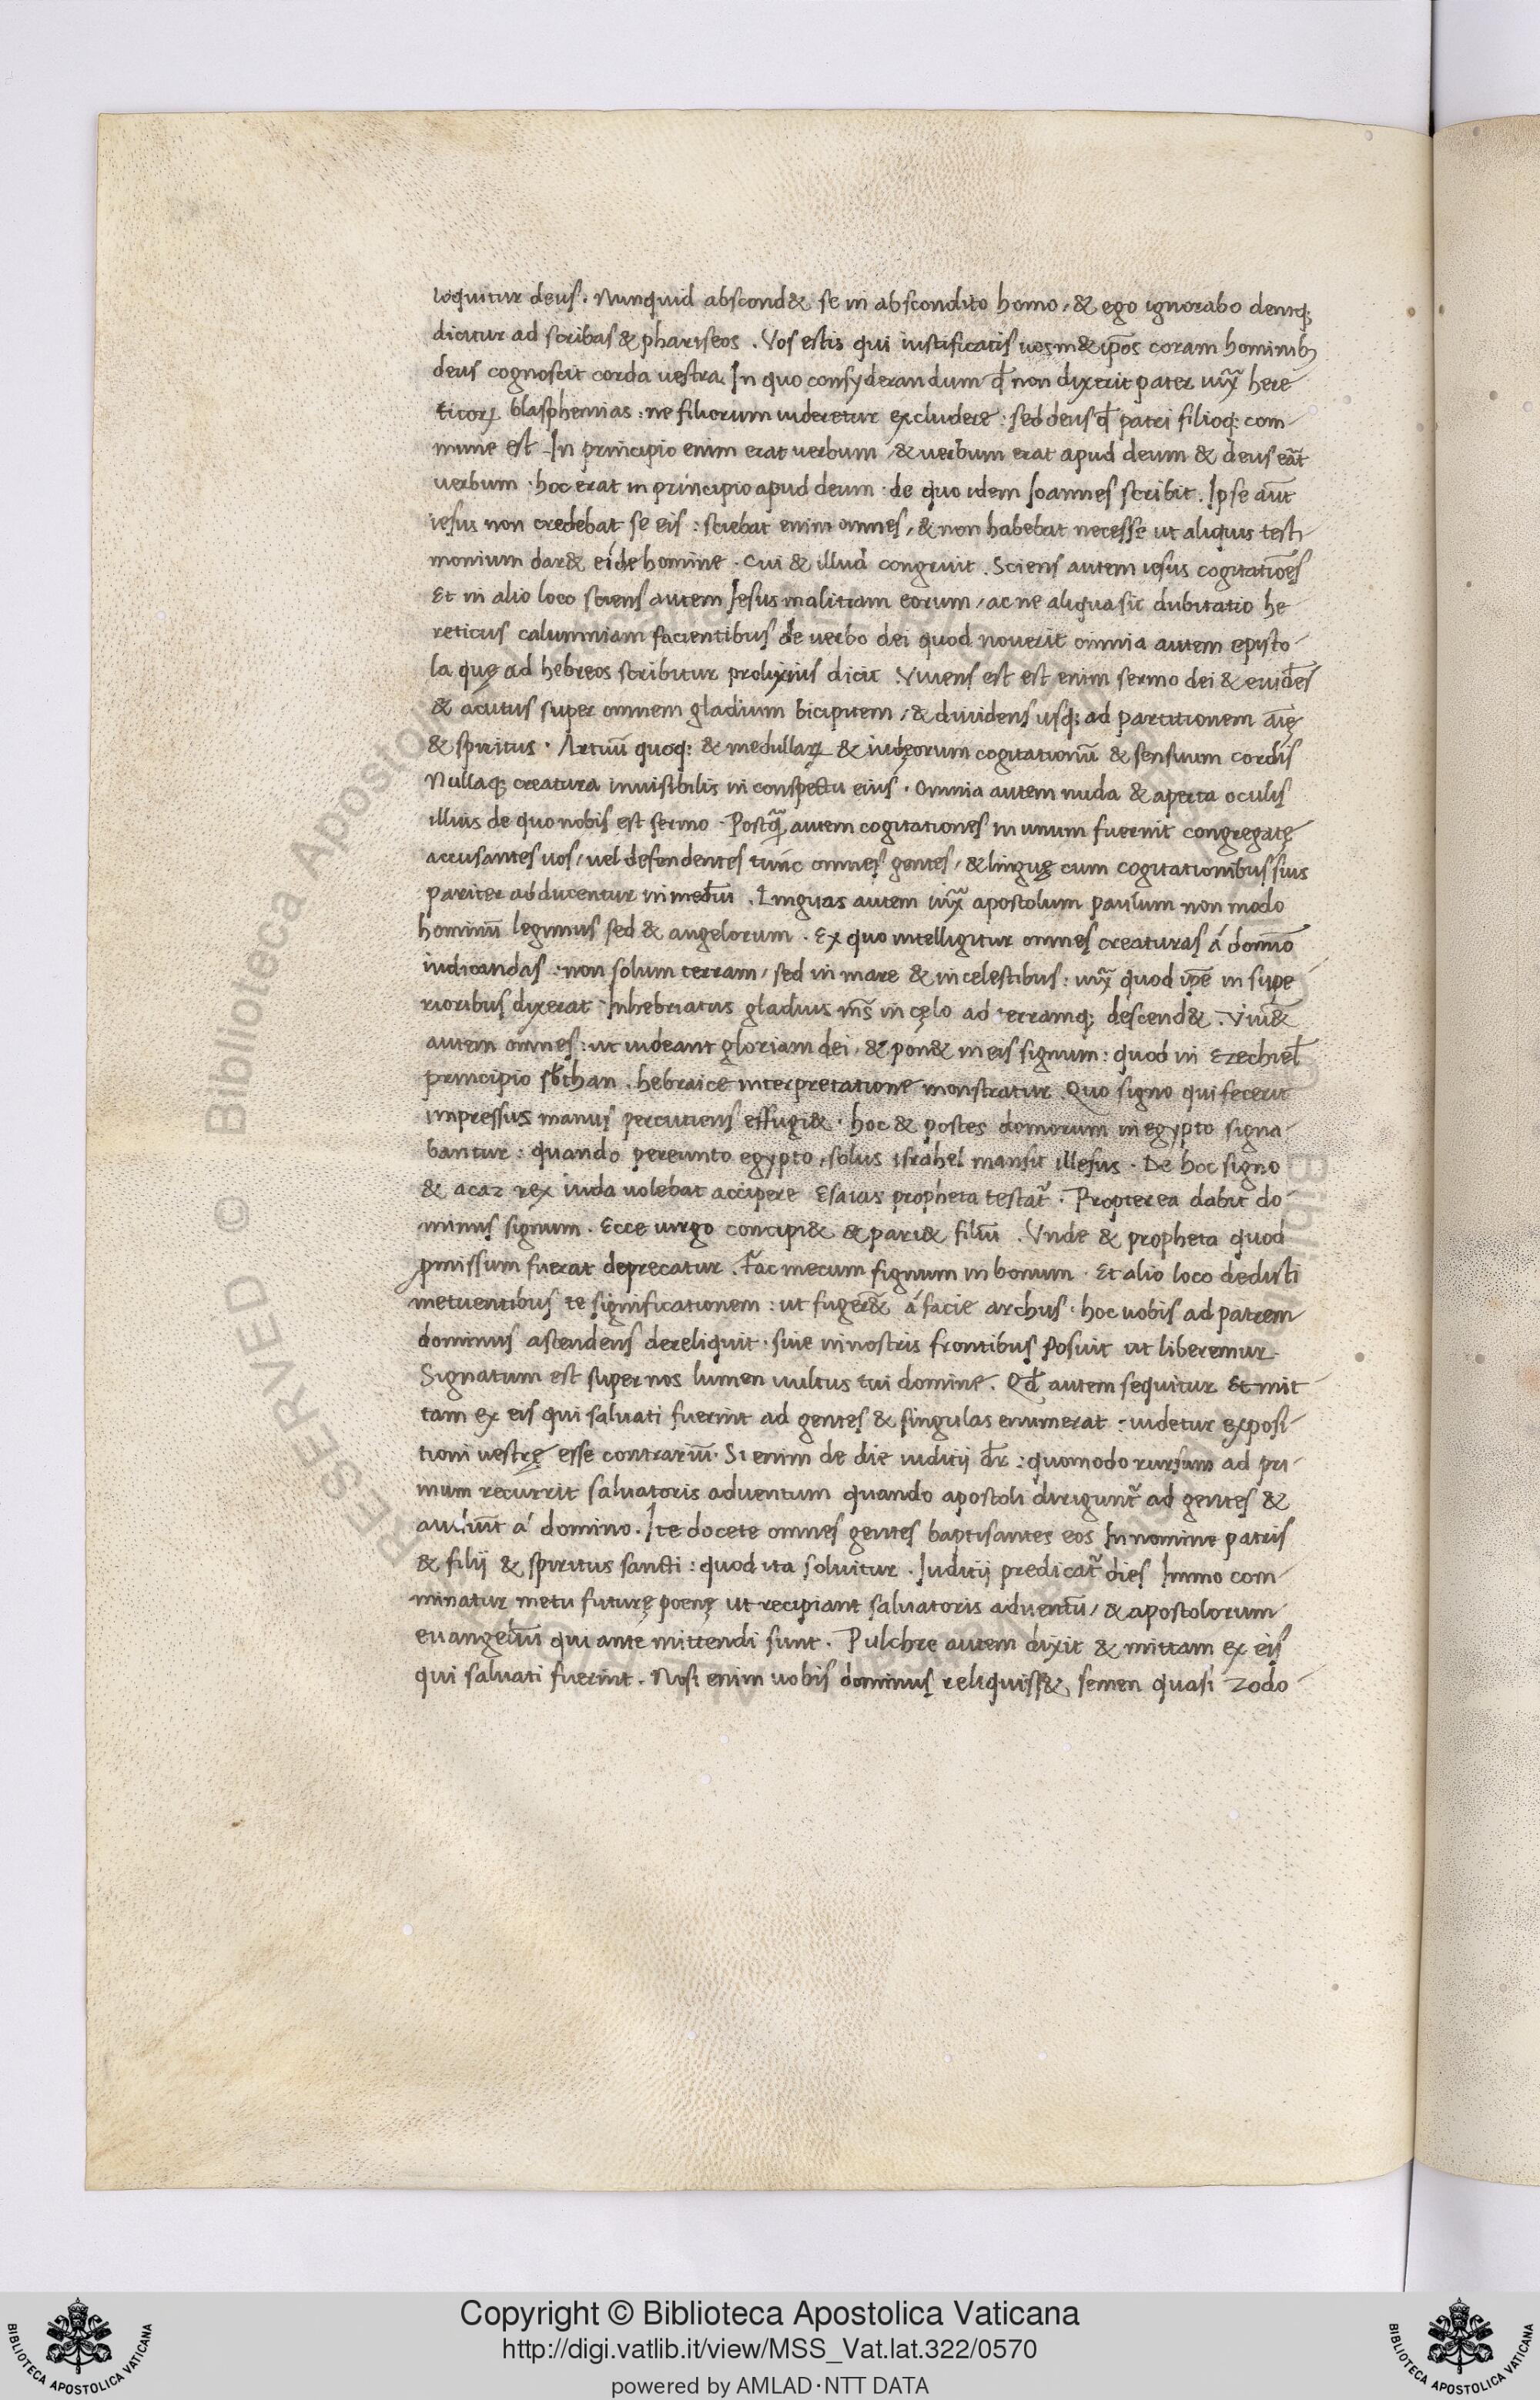 loquitur deus. Nunquid abscond& se in abscondito homo, & ego ignorabo deniq;
dicitur ad scribas & phariseos. Vos estis qui iustificatis uosm&ip̄os coram hominib;
deus cognoscit corda uestra. In quo consyderandum qd̄ non dixerit pater iux̄ here
ticorꝝ blasphemias: ne filiorum uideretur excludere: sed deus qd̄ patri filioq; com-
mune est. In principio enim erat uerbum, & uerbum erat apud deum & deus erāt
uerbum. hoc erat in principio apud deum. de quo idem Ioannes scribit. Ipse aūt
iesus non credebat se eis: sciebat enim omnes, & non habebat necesse ut aliquis testi
monium dar& ei de homine. Cui & illud congruit. Sciens autem iesus cogitatiōes
Et in alio loco sciens autem Iesus malitiam eorum, ac ne aliqua sit dubitatio he
reticus calumniam facientibus de uerbo dei quod nouerit omnia autem episto-
la quę ad hebreos scribitur prolixius dicit. Viuens est est enim sermo dei & euidēs
& acutus super omnem gladium bicipitem, & diuidens usq; ad partitionem aīę
& spiritus. Artiuū quoq; & medullarꝝ & iudęorum cogitationū & sensuum cordis
Nullaq; creatura inuisibilis in conspectu eius. Omnia autem nuda & aperta oculis
illius de quo nobis est sermo. Postq̄ autem cogitationes in unum fuerint congregatę
accusantes uos, uel defendentes tunc omnes gentes, & linguę cum cogitationibus suis
pariter adducentur in mediū. Linguas autem iux̄ apostolum paulum non modo
hominū legimus sed & angelorum. Ex quo intelligitur omnes creaturas á domīo
iudicandas: non solum terram, sed in mare & in celestibus: iux̄ quod ip̄e in supe
rioribus dixerat Inhebriatus gladius ms̄ in cęlo ad terramq; descend&. Viu&
autem omnes: ut uideant gloriam dei, & pon& in eis signum: quod in Ezechiel̄
principio sb̄than. hebraice interpretatione monstratur. Quo signo qui fecerit
impressus manus percutiens effugi&. hoc & postes domorum in egypto signa-
bantur: quando pereunto egypto, solus israhel mansit illesus. De hoc signo
& acaz rex iuda uolebat accipere Esaias propheta testat̄. Propterea dabit do-
minus signum. Ecce uirgo concipi& & pari& filiū. Vnde & propheta quod
pmissum fuerat deprecatur. Fac mecum signum in bonum. Et alio loco dedisti
metuentibus te significationem: ut fuger& á facie archus. hoc uobis ad patrem
dominus ascendens dereliquit. siue in nostris frontibus posuit ut liberemur.
Signatum est super nos lumen uultus tui domine. Qd̄ autem sequitur Et mit
tam ex eis qui saluati fuerint ad gentes & singulas enumerat: uidetur exposi-
tioni uestrę esse contrariū. Si enim de die iuditij dr̄: quomodo rursum ad pri-
mum recurrit saluatoris aduentum quando apostoli dirigunt̄ ad gentes &
audiūt á domino. Ite docete omnes gentes baptisantes eos In nomine patris
& filij & spiritus sancti: quod ita soluitur. Iuditij predicat̄ dies Immo com-
minatur metu futurę poenę ut recipiant saluatoris aduentū, & apostolorum
euangeliū qui ante mittendi sunt. Pulchre autem dixit & mittam ex eis
qui saluati fuerint. Nisi enim uobis dominus reliquiss& semen quasi zodo-
Copyright © Biblioteca Apostolica Vaticana
http://digi.vatlib.it/view/MSS_Vat.lat.322/0570
powered by AMLAD·NTT DATA